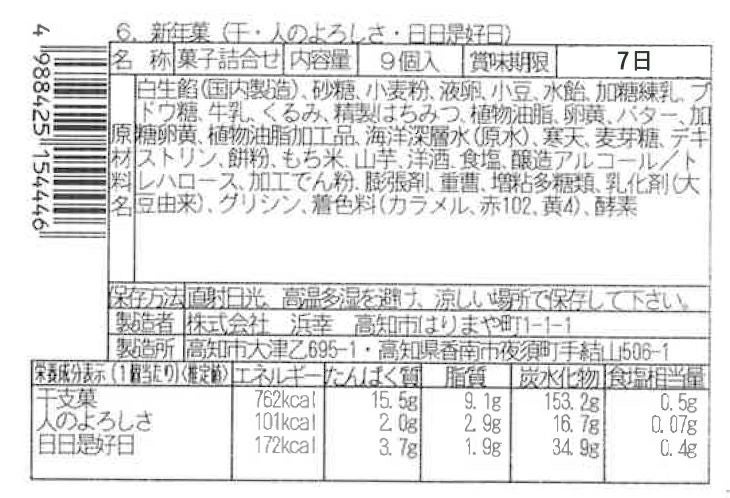 6. 新年菓(干・人のよろしさ・日日是好日)
名 称 菓子詰合せ 内容量 9個入 賞味期限 7日
原材料名 白生餡(国内製造)、砂糖、小麦粉、液卵、小豆、水飴、加糖練乳、ブ
ドウ糖、牛乳、くるみ、精製はちみつ、植物油脂、卵黄、バター、加
糖卵黄、植物油脂加工品、海洋深層水(原水)、寒天、麦芽糖、デキ
ストリン、餅粉、もち米、山芋、洋酒、食塩、醸造アルコール/ト
レハロース、加工でん粉、膨張剤、重曹、増粘多糖類、乳化剤(大
豆由来)、グリシン、着色料(カラメル、赤102、黄4)、酵素
保存方法 直射日光、高温多湿を避け、涼しい場所で保存して下さい。
製造者 株式会社 浜幸 高知市はりまや町1-1-1
製造所 高知市大津乙695-1・高知県香南市夜須町手結山506-1
栄養成分表示(1個当たり)(推定値) エネルギー たんぱく質 脂質 炭水化物 食塩相当量
干支菓 762kcal 15.5g 9.1g 153.2g 0.5g
人のよろしさ 101kcal 2.0g 2.9g 16.7g 0.07g
日日是好日 172kcal 3.7g 1.9g 34.9g 0.4g
4 988425 154446